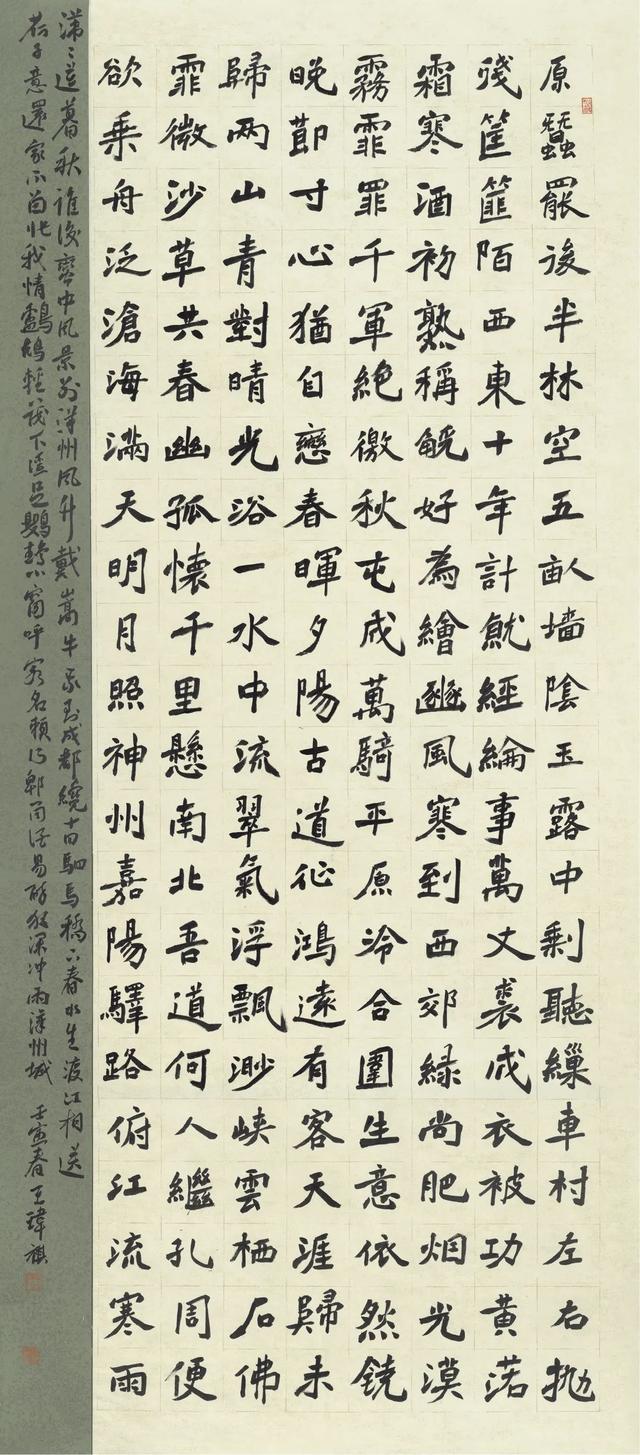 原蠶罷後半林空五畝墻陰玉露中剩聽繅車村左右拋
殘筐篚陌西東十年計就經綸事萬丈裘成衣被功黃落
霜寒酒初熟稱觥好為繪豳風寒到西郊緑尚肥烟光漠
霧霏霏千軍絕徼秋屯成萬騎平原冷合圍生意依然饒
晚節寸心猶自戀春暉夕陽古道征鴻遠有客天涯歸未
歸兩山青對晴光浴一水中流翠氣浮飄渺峽雲栖石佛
霏微沙草共春幽孤懷千里懸南北吾道何人繼孔周便
欲乘舟泛滄海滿天明月照神州嘉陽驛路俯江流寒雨
暮秋誰復客中風景別漢州戴嵩牛我到成都纔十日駟馬橋下春水生渡江相送
荷子意還家不留非我情鸕鶿輕筏下溪足鸚鵡小窗呼客名賴得郫筒酒易醉夜深沖雨漢州城 壬寅春王瑋祺